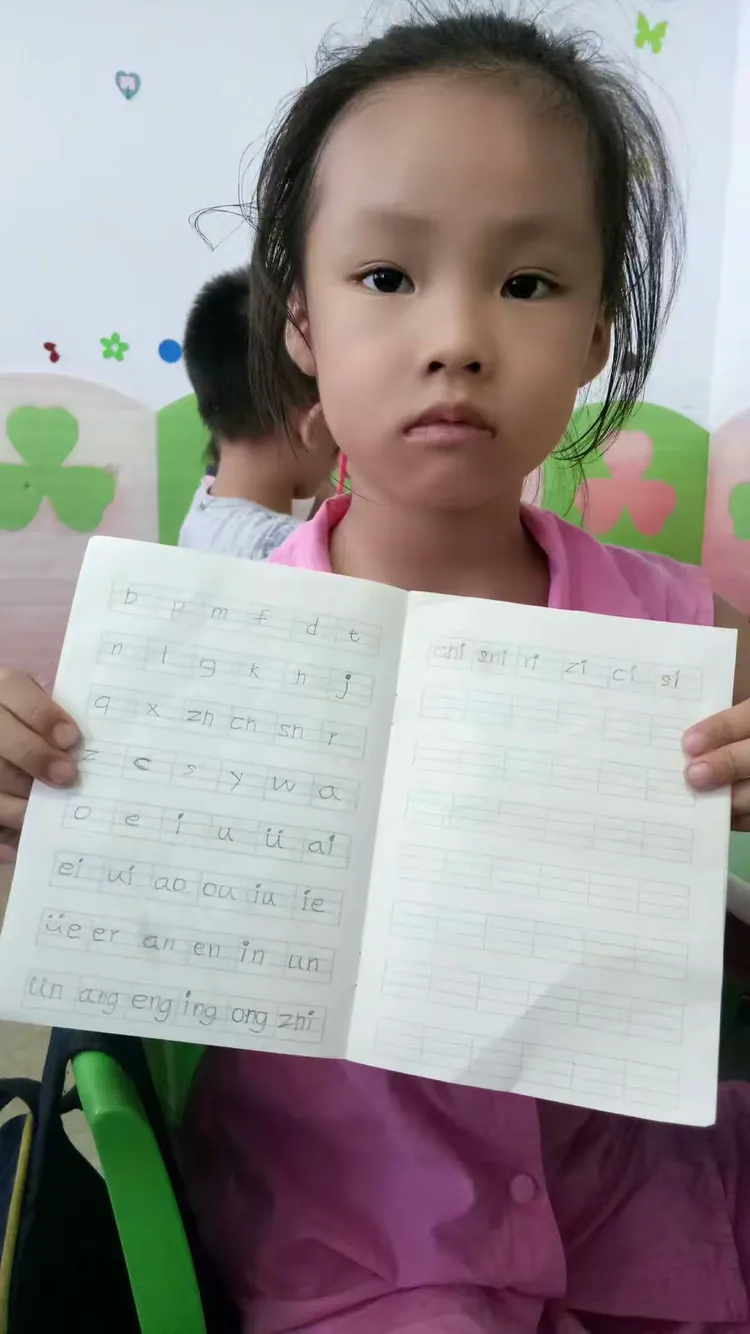 b p m f d t
n l g k h j
q x zh ch sh r
z c s y w a
o e i u ü ai
ei ui ao ou iu ie
üe er an en in un
ün ang eng ing ong zhi
chi shi ri zi ci si